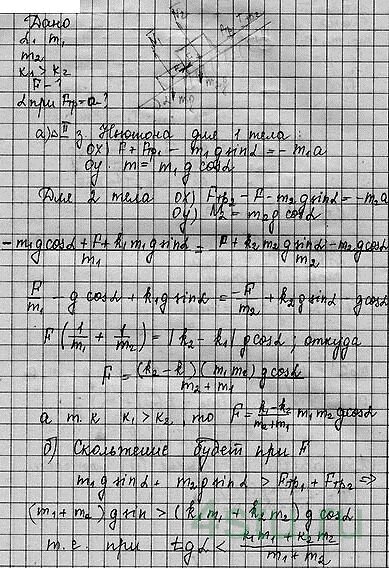 Дано
α, m₁
m₂
k₁ > k₂
F - ?
α при Aтр = a?
а) II з. Ньютона для 1 тела:
ОХ) F + Fтр₁ - m₁g sinα = - m₁a
Оу) m = m₁g cosα
Для 2 тела ОХ) Fтр₂ - F - m₂g sinα = -m₂a
Оу) N₂ = m₂g cosα
(-m₁g cosα + F + k₁m₁g sinα)/m₁ = (F + k₂m₂g sinα - m₂g cosα)/m₂
F/m₁ - g cosα + k₁g sinα = -F/m₂ + k₂g sinα - g cosα
F(1/m₁ + 1/m₂) = |k₂ - k₁| g cosα; откуда
F = (k₂ - k)(m₁m₂) g cosα/(m₂ + m₁)
а т.к k₁ > k₂, то F = (k₁ - k₂)/(m₂ + m₁) m₁m₂g cosα
б) Скольжение будет при F
m₁g sinα + m₂g sinα > Fтр₁ + Fтр₂ ⇒
(m₁ + m₂)g sin > (k₁m₁ + k₂m₂) g cosα
т.е. при tgα < (k₁m₁ + k₂m₂)/(m₁ + m₂)